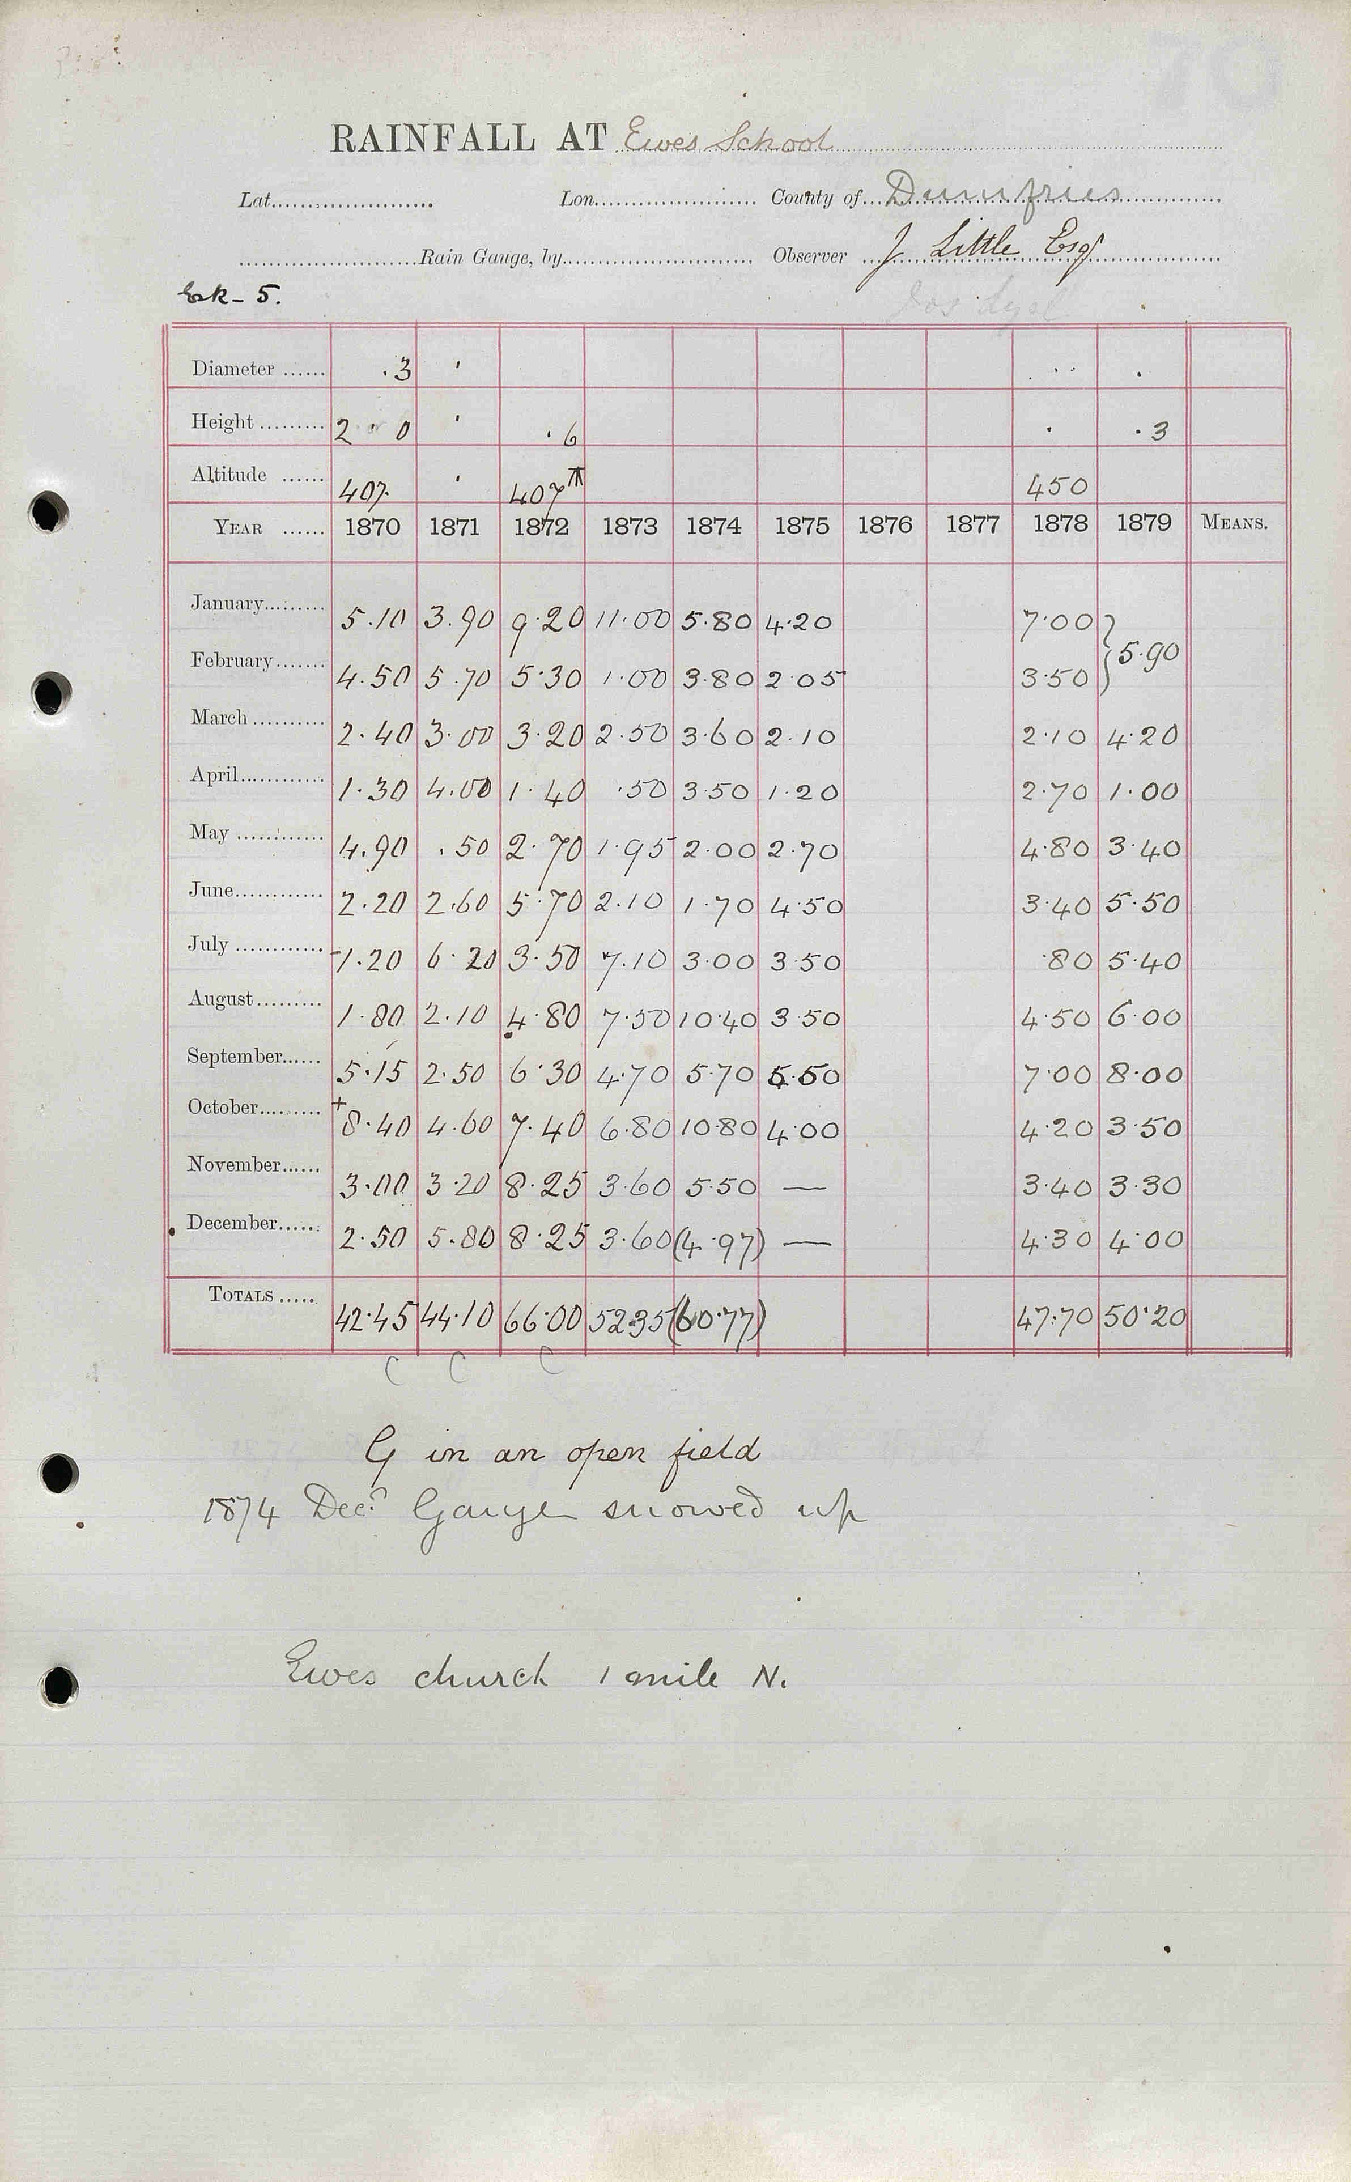 RAINFALL AT Ewes School
Lat. Lon. County of Dumfries
Rain Gauge, by Observer J Little Esqr
Esk - 5.
Diameter ...... .3
Height ......... 2 . 0 . 6 . 3
Altitude ...... 407. 407 T 450
YEAR ...... 1870 1871 1872 1873 1874 1875 1876 1877 1878 1879 MEANS.
January 5.10 3.90 9.20 11.00 5.80 4.20 7.00 } 5.90
February 4.50 5.70 5.30 1.00 3.80 2.05 3.50
March 2.40 3.00 3.20 2.50 3.60 2.10 2.10 4.20
April 1.30 4.00 1.40 .50 3.50 1.20 2.70 1.00
May 4.90 .50 2.70 1.95 2.00 2.70 4.80 3.40
June 2.20 2.60 5.70 2.10 1.70 4.50 3.40 5.50
July 1.20 6.20 3.50 7.10 3.00 3.50 .80 5.40
August 1.80 2.10 4.80 7.50 10.40 3.50 4.50 6.00
September 5.15 2.50 6.30 4.70 5.70 5.50 7.00 8.00
October + 8.40 4.60 7.40 6.80 10.80 4.00 4.20 3.50
November 3.00 3.20 8.25 3.60 5.50 — 3.40 3.30
December 2.50 5.80 8.25 3.60 (4.97) — 4.30 4.00
TOTALS 42.45 44.10 66.00 52.35 (60.77) 47.70 50.20
C C C
G in an open field
1874 Decr Gauge snowed up
Ewes church 1 mile N.